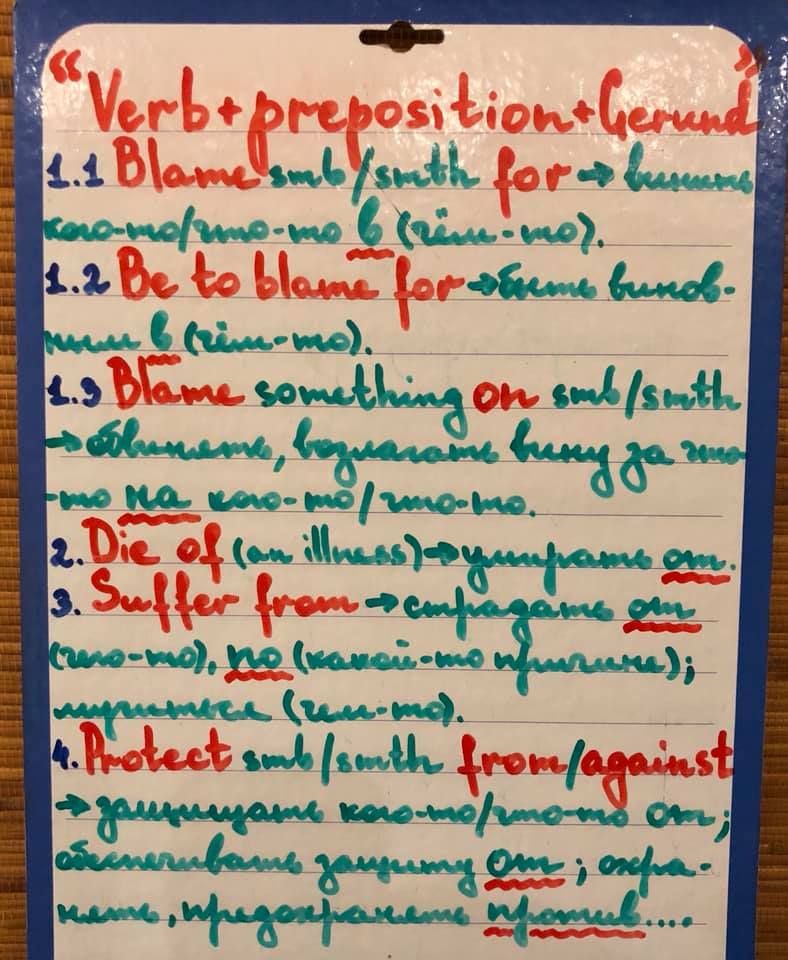 "Verb+preposition+Gerund"
1.1 Blame smb/smth for → винить
кого-то/что-то в (чём-то).
1.2 Be to blame for → быть винов-
ным в (чём-то).
1.3 Blame something on smb/smth
→ обвинять, возлагать вину за что-
-то на кого-то/что-то.
2. Die of (an illness) → умирать от.
3. Suffer from → страдать от
(чего-то), по (какой-то причине);
мучиться (чем-то).
4. Protect smb/smth from/against
→ защищать кого-то/что-то от;
обеспечивать защиту от; охра-
нять, предохранять против....